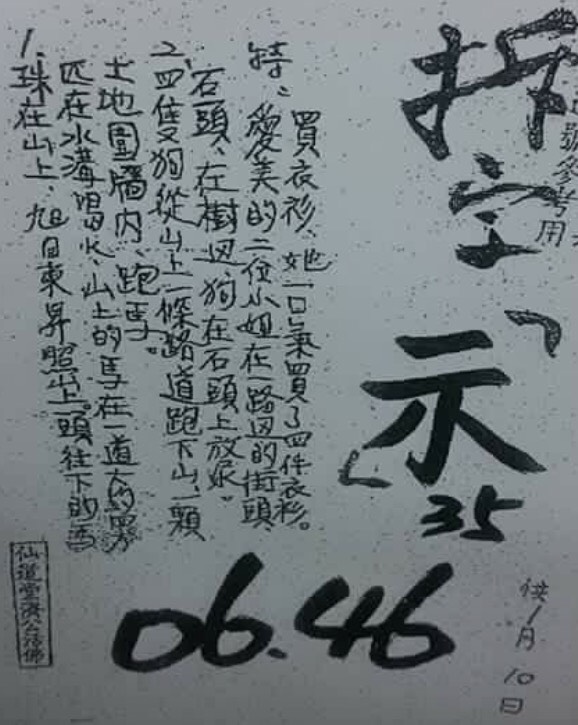 號參考用
拆字「示」
35
1、珠在山上、旭日東昇照山上。一頭往下的
匹在水溝喝水、山上的馬在一道大的
土地圍牆內、跑馬。
二、四隻狗從山上一條路道跑下山、一顆
石頭、在樹边狗在石頭上放尿。
特、愛美的二位小姐在一路边的街頭、
買衣衫、她一口氣買了四件衣衫。
06.46
1月10日
仙道堂濟公活佛